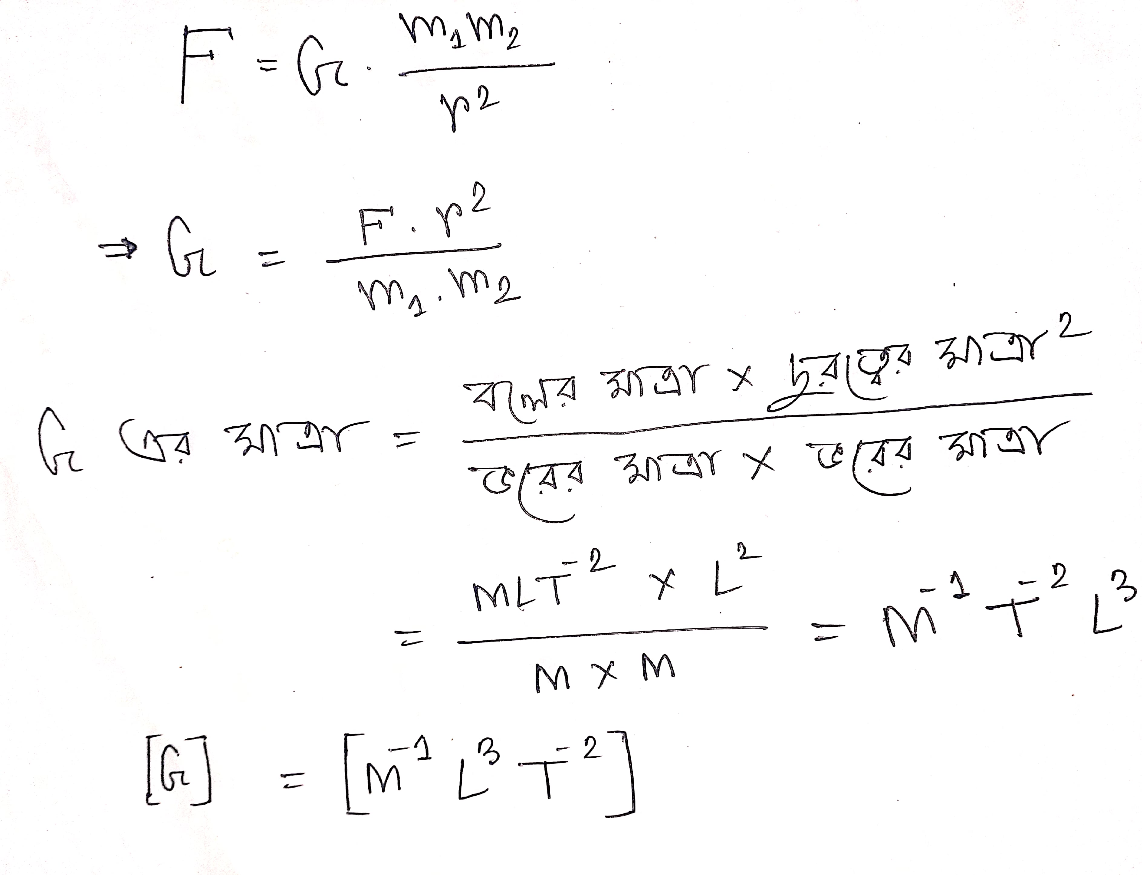 F = G · m₁m₂ / r²
⇒ G = F · r² / m₁ · m₂
G এর মাত্রা = বলের মাত্রা × দুরত্বের মাত্রা² / ভরের মাত্রা × ভরের মাত্রা
= MLT⁻² × L² / M × M = M⁻¹ T⁻² L³
[G] = [M⁻¹ L³ T⁻²]